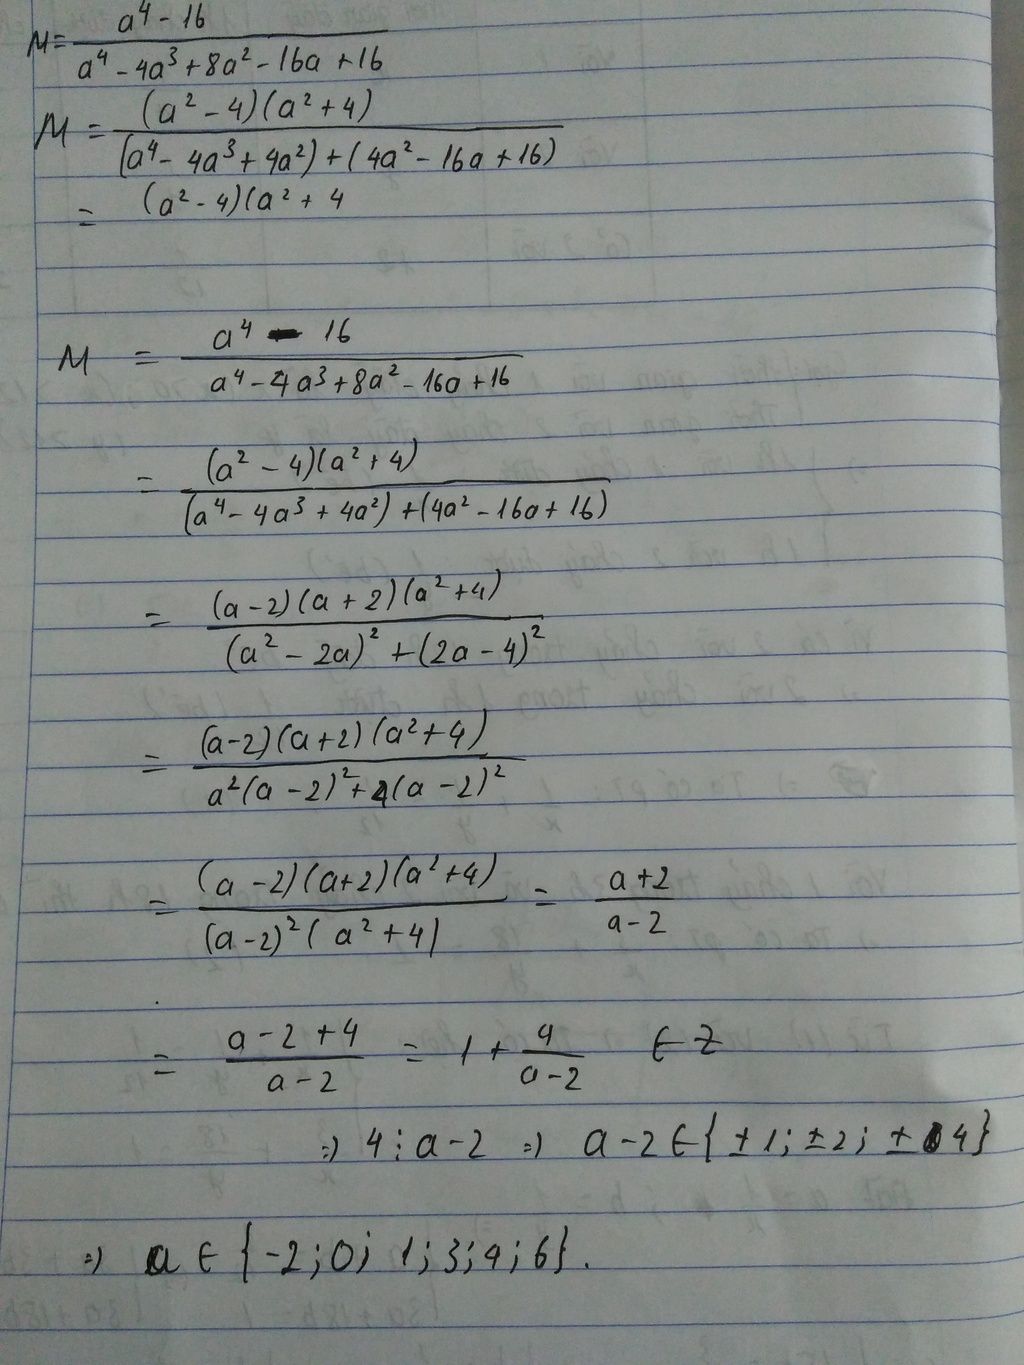 M = (a⁴ - 16) / (a⁴ - 4a³ + 8a² - 16a + 16)
M = (a² - 4)(a² + 4) / (a⁴ - 4a³ + 4a²) + (4a² - 16a + 16)
= (a² - 4)(a² + 4
M = (a⁴ - 16) / (a⁴ - 4a³ + 8a² - 16a + 16)
= (a² - 4)(a² + 4) / (a⁴ - 4a³ + 4a²) + (4a² - 16a + 16)
= (a - 2)(a + 2)(a² + 4) / (a² - 2a)² + (2a - 4)²
= (a - 2)(a + 2)(a² + 4) / a²(a - 2)² + 4(a - 2)²
= (a - 2)(a + 2)(a² + 4) / (a - 2)²(a² + 4) = (a + 2) / (a - 2)
= (a - 2 + 4) / (a - 2) = 1 + 4 / (a - 2) ∈ Z
=> 4 ⋮ a - 2 => a - 2 ∈ {±1; ±2; ±4}
=> a ∈ {-2; 0; 1; 3; 4; 6}.